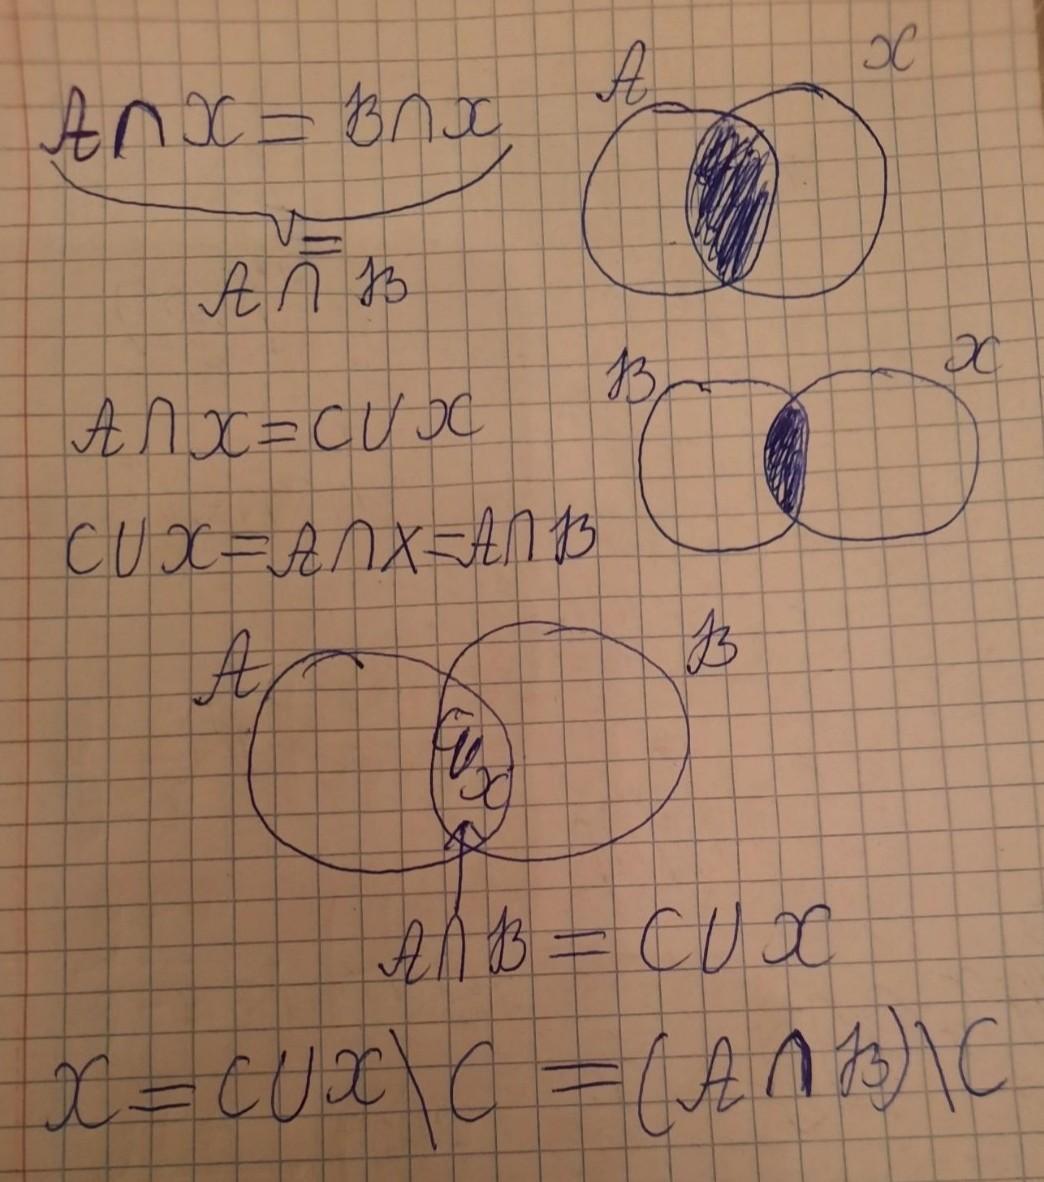 A∩X = B∩X
=
A∩B
A X
A∩X=C∪X
B X
C∪X=A∩X=A∩B
A B
C∪X
A∩B = C∪X
X = C∪X\C = (A∩B)\C